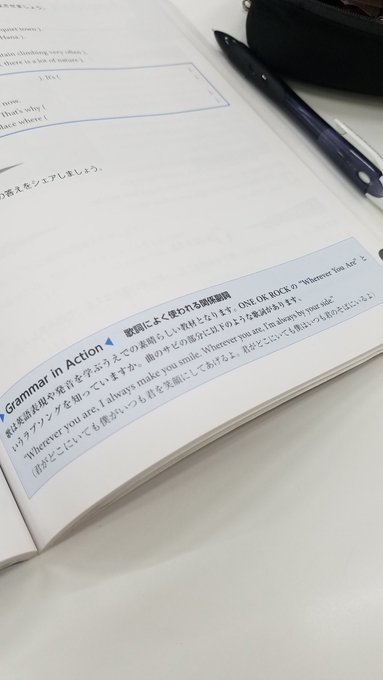 quiet town ).
Hana ).
ntain climbing very often ).
( there is a lot of nature ).
). It's (
now.
That's why (
place where (
の答えをシェアしましょう。
Grammar in Action 歌詞によく使われる関係副詞
歌は英語表現や発音を学ぶうえでの素晴らしい教材となります。ONE OK ROCK の "Wherever You Are" と
いうラブソングを知っていますか。曲のサビの部分に以下のような歌詞があります。
"Wherever you are, I always make you smile. Wherever you are, I'm always by your side."
(君がどこにいても僕がいつも君を笑顔にしてあげるよ。君がどこにいても僕はいつも君のそばにいるよ)